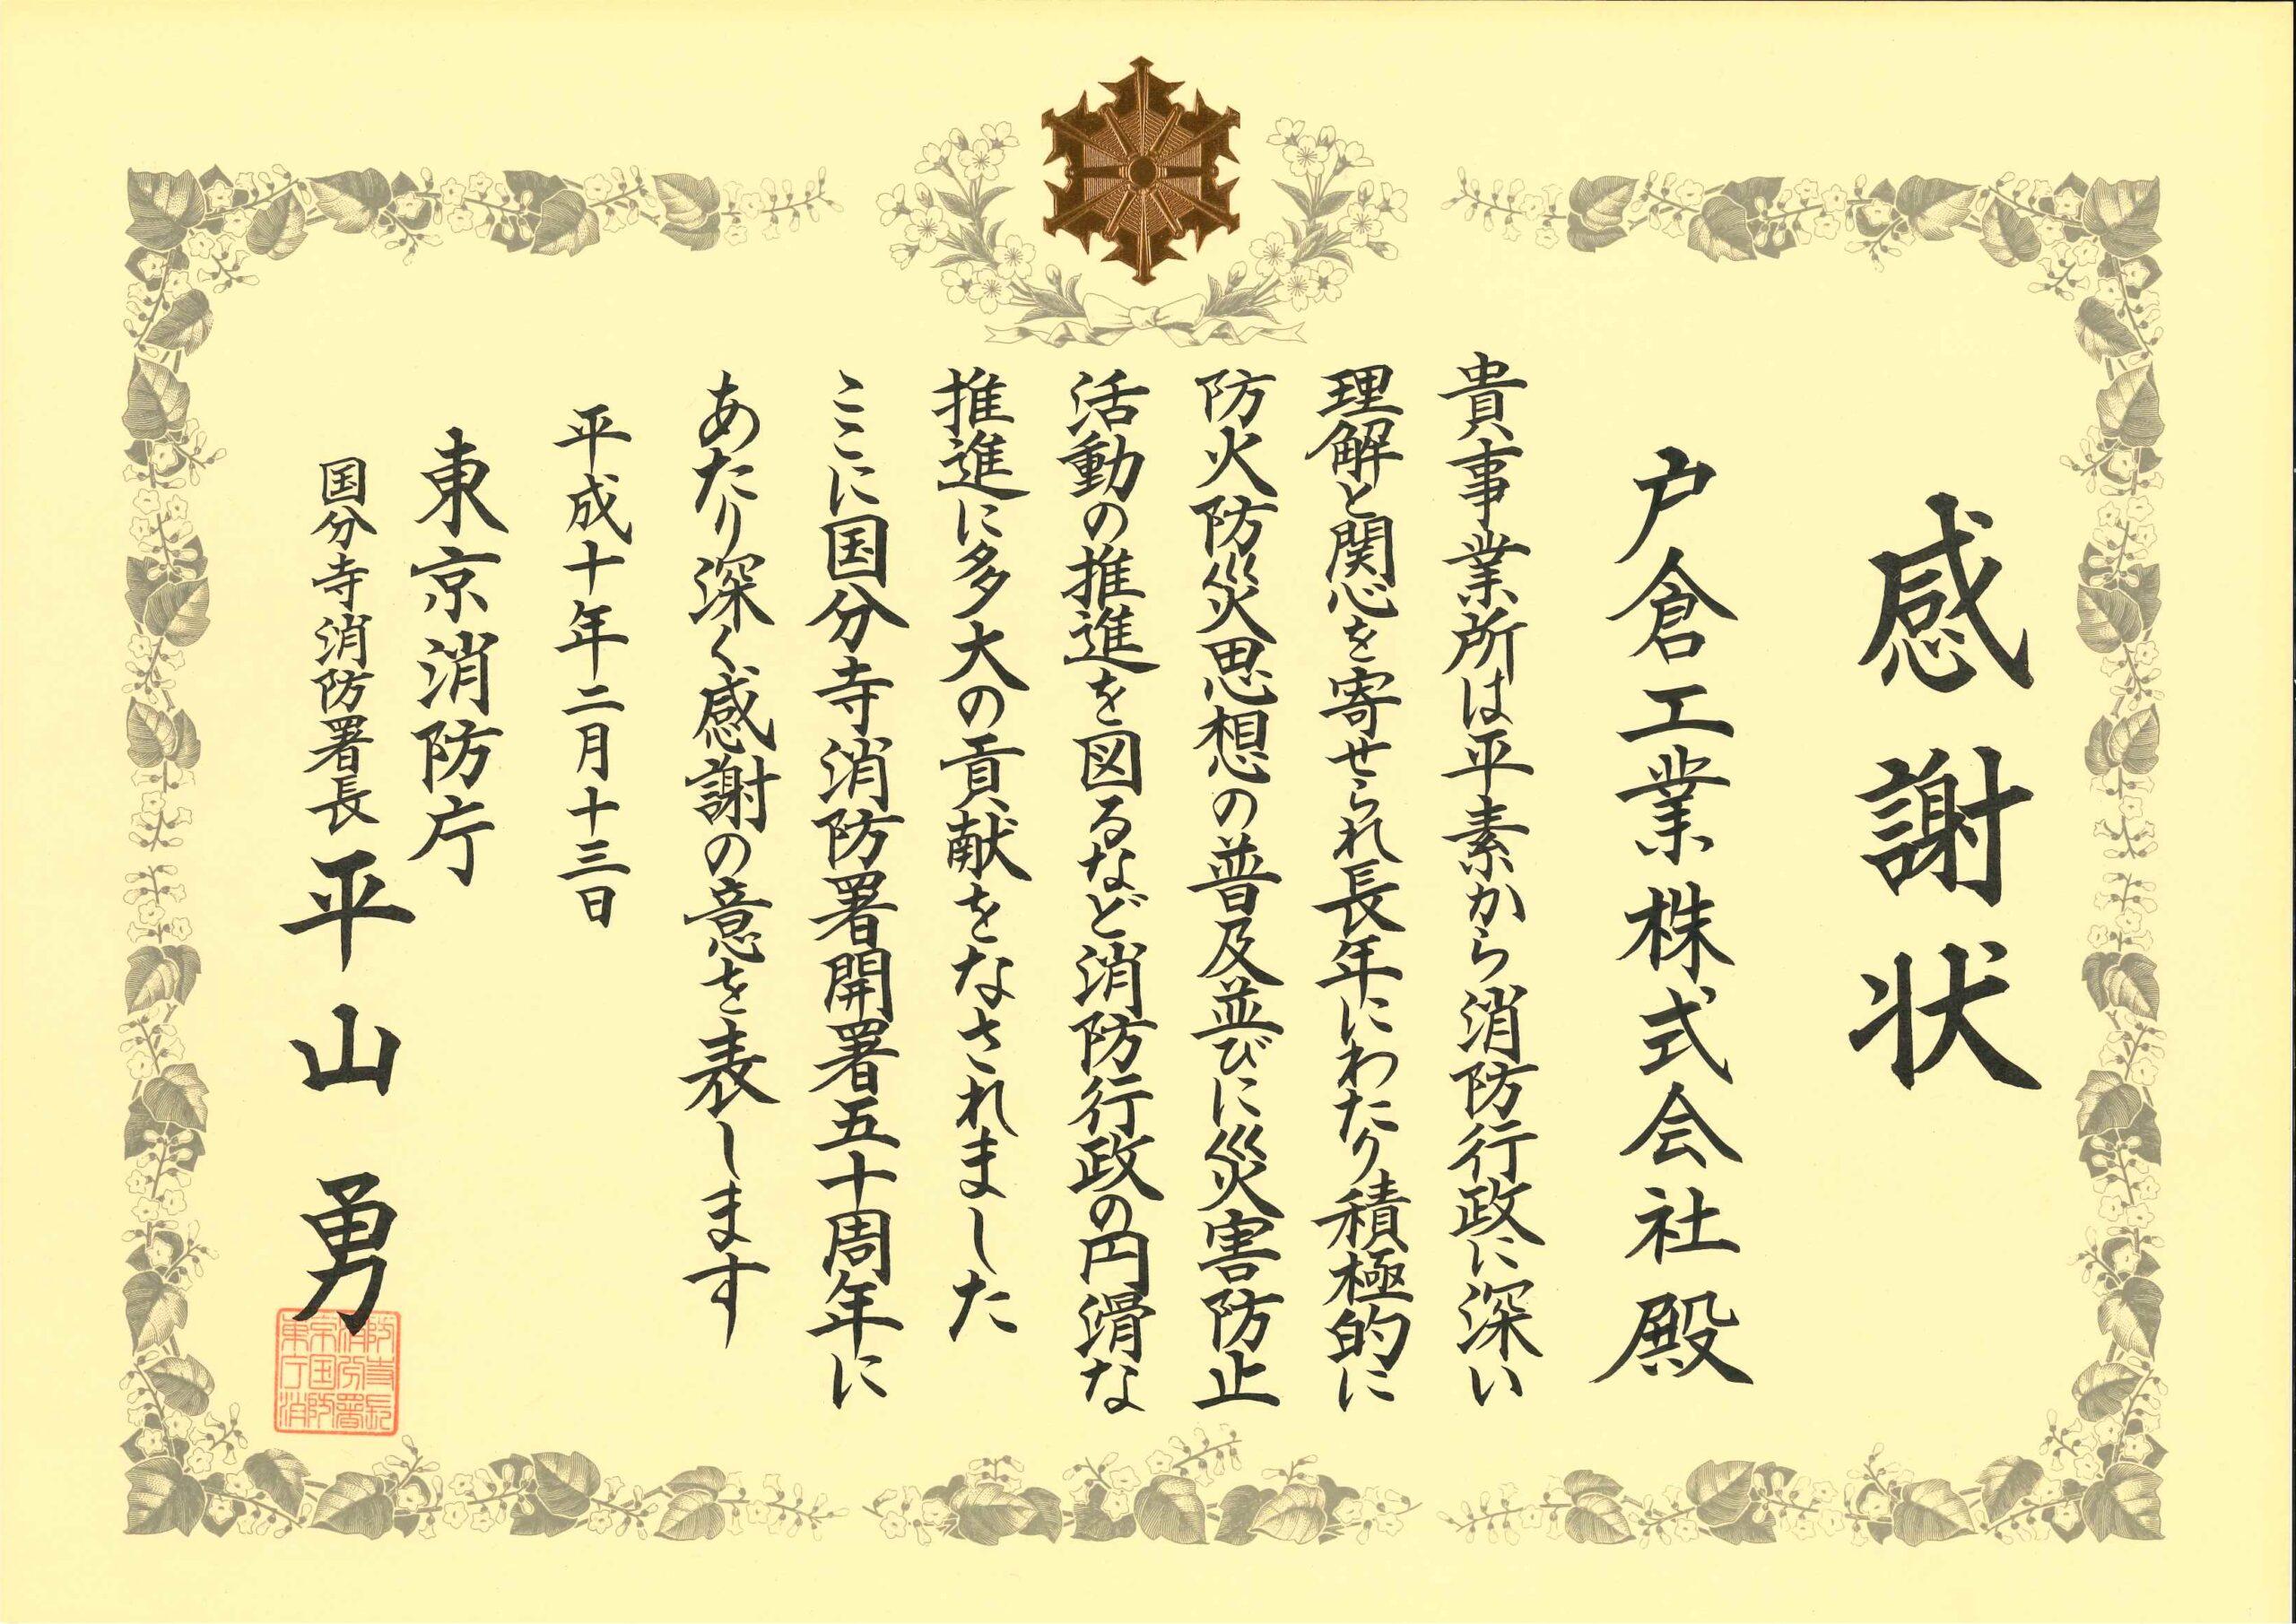 感謝状
戸倉工業株式会社殿
貴事業所は平素から消防行政に深い
理解と関心を寄せられ長年にわたり積極的に
防火防災思想の普及並びに災害防止
活動の推進を図るなど消防行政の円滑な
推進に多大の貢献をなされました
ここに国分寺消防署開署五十周年に
あたり深く感謝の意を表します
平成十年二月十三日
東京消防庁
国分寺消防署長 平山勇
東京消防
庁国分寺
消防署長